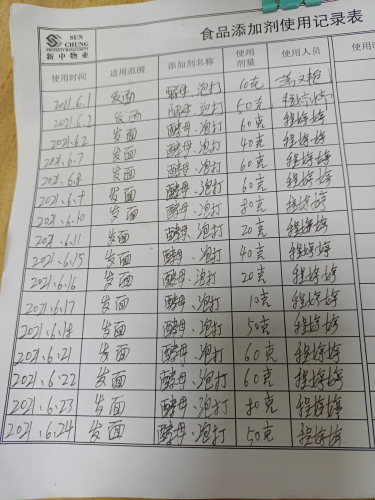 SUN
CHUNG
PROPERTY
新中物业
食品添加剂使用记录表
使用时间 适用范围 添加剂名称 使用剂量 使用人员
2021.6.1 发面 酵母、泡打 10克
2021.6.2 发面 酵母、泡打 50克 程婷婷
2021.6.2 发面 酵母、泡打 60克 程婷婷
2021.6.7 发面 酵母、泡打 40克 程婷婷
2021.6.8 发面 酵母、泡打 60克 程婷婷
2021.6.9 发面 酵母、泡打 60克 程婷婷
2021.6.10 发面 酵母、泡打 80克 程婷婷
2021.6.11 发面 酵母、泡打 20克 程婷婷
2021.6.15 发面 酵母、泡打 40克 程婷婷
2021.6.16 发面 酵母、泡打 20克 程婷婷
2021.6.17 发面 酵母、泡打 10克 程婷婷
2021.6.18 发面 酵母、泡打 50克 程婷婷
2021.6.21 发面 酵母、泡打 60克 程婷婷
2021.6.22 发面 酵母、泡打 60克 程婷婷
2021.6.23 发面 酵母、泡打 80克 程婷婷
2021.6.24 发面 酵母、泡打 50克 程婷婷